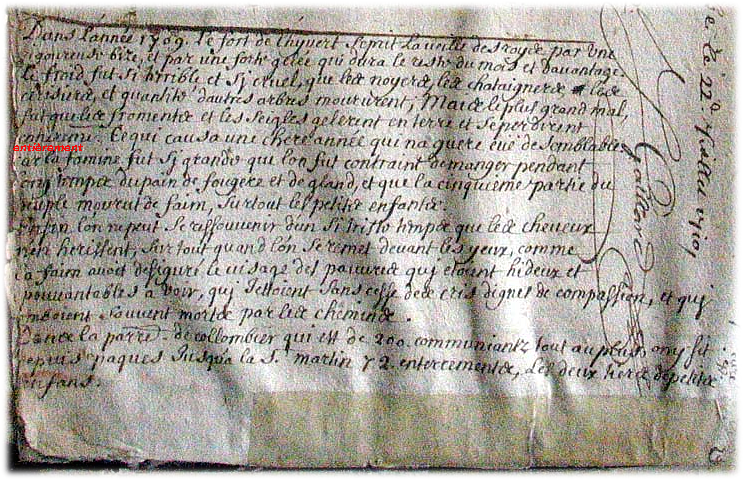 Dans l'année 1709. le fort de l'hyvert se prit la veille des roys par une
rigoureuse bize, et par une forte gelée qui dura le reste du mois et d'avantage.
le froid fut si horrible et si cruel, que les noyers, les chataigners, les
cerisiers, et quantité d'autres arbres moururent, Mais le plus grand mal,
fut que les froments et les seigles gelerent en terre et se perdirent
entièrement. Ce qui causa une chere année qui n'a guere eüe de semblable
car la famine fut si grande que l'on fut contraint de manger pendant
long temps du pain de fougere et de gland, et que la cinquieme partie du
peuple mourut de faim, surtout les petits enfants.
Enfin l'on ne peut se ressouvenir d'un si triste temps que les cheveux
n'en herissent, sur tout quand l'on se remet devant les yeux, comme
la faim avoit defiguré le visage des pauvres qui etoient hideux et
epouvantables a voir, qui jettoient sans cesse des cris dignes de compassion, et qui
tomboient souvent morts par les chemins.
Dans la parr. de collombier qui est de 200 communiants tout au plus, on y fit
depuis paques jusqu'a la S. martin 72 enterrements, les deux tiers de petits
enfans.
entièrement
gallard